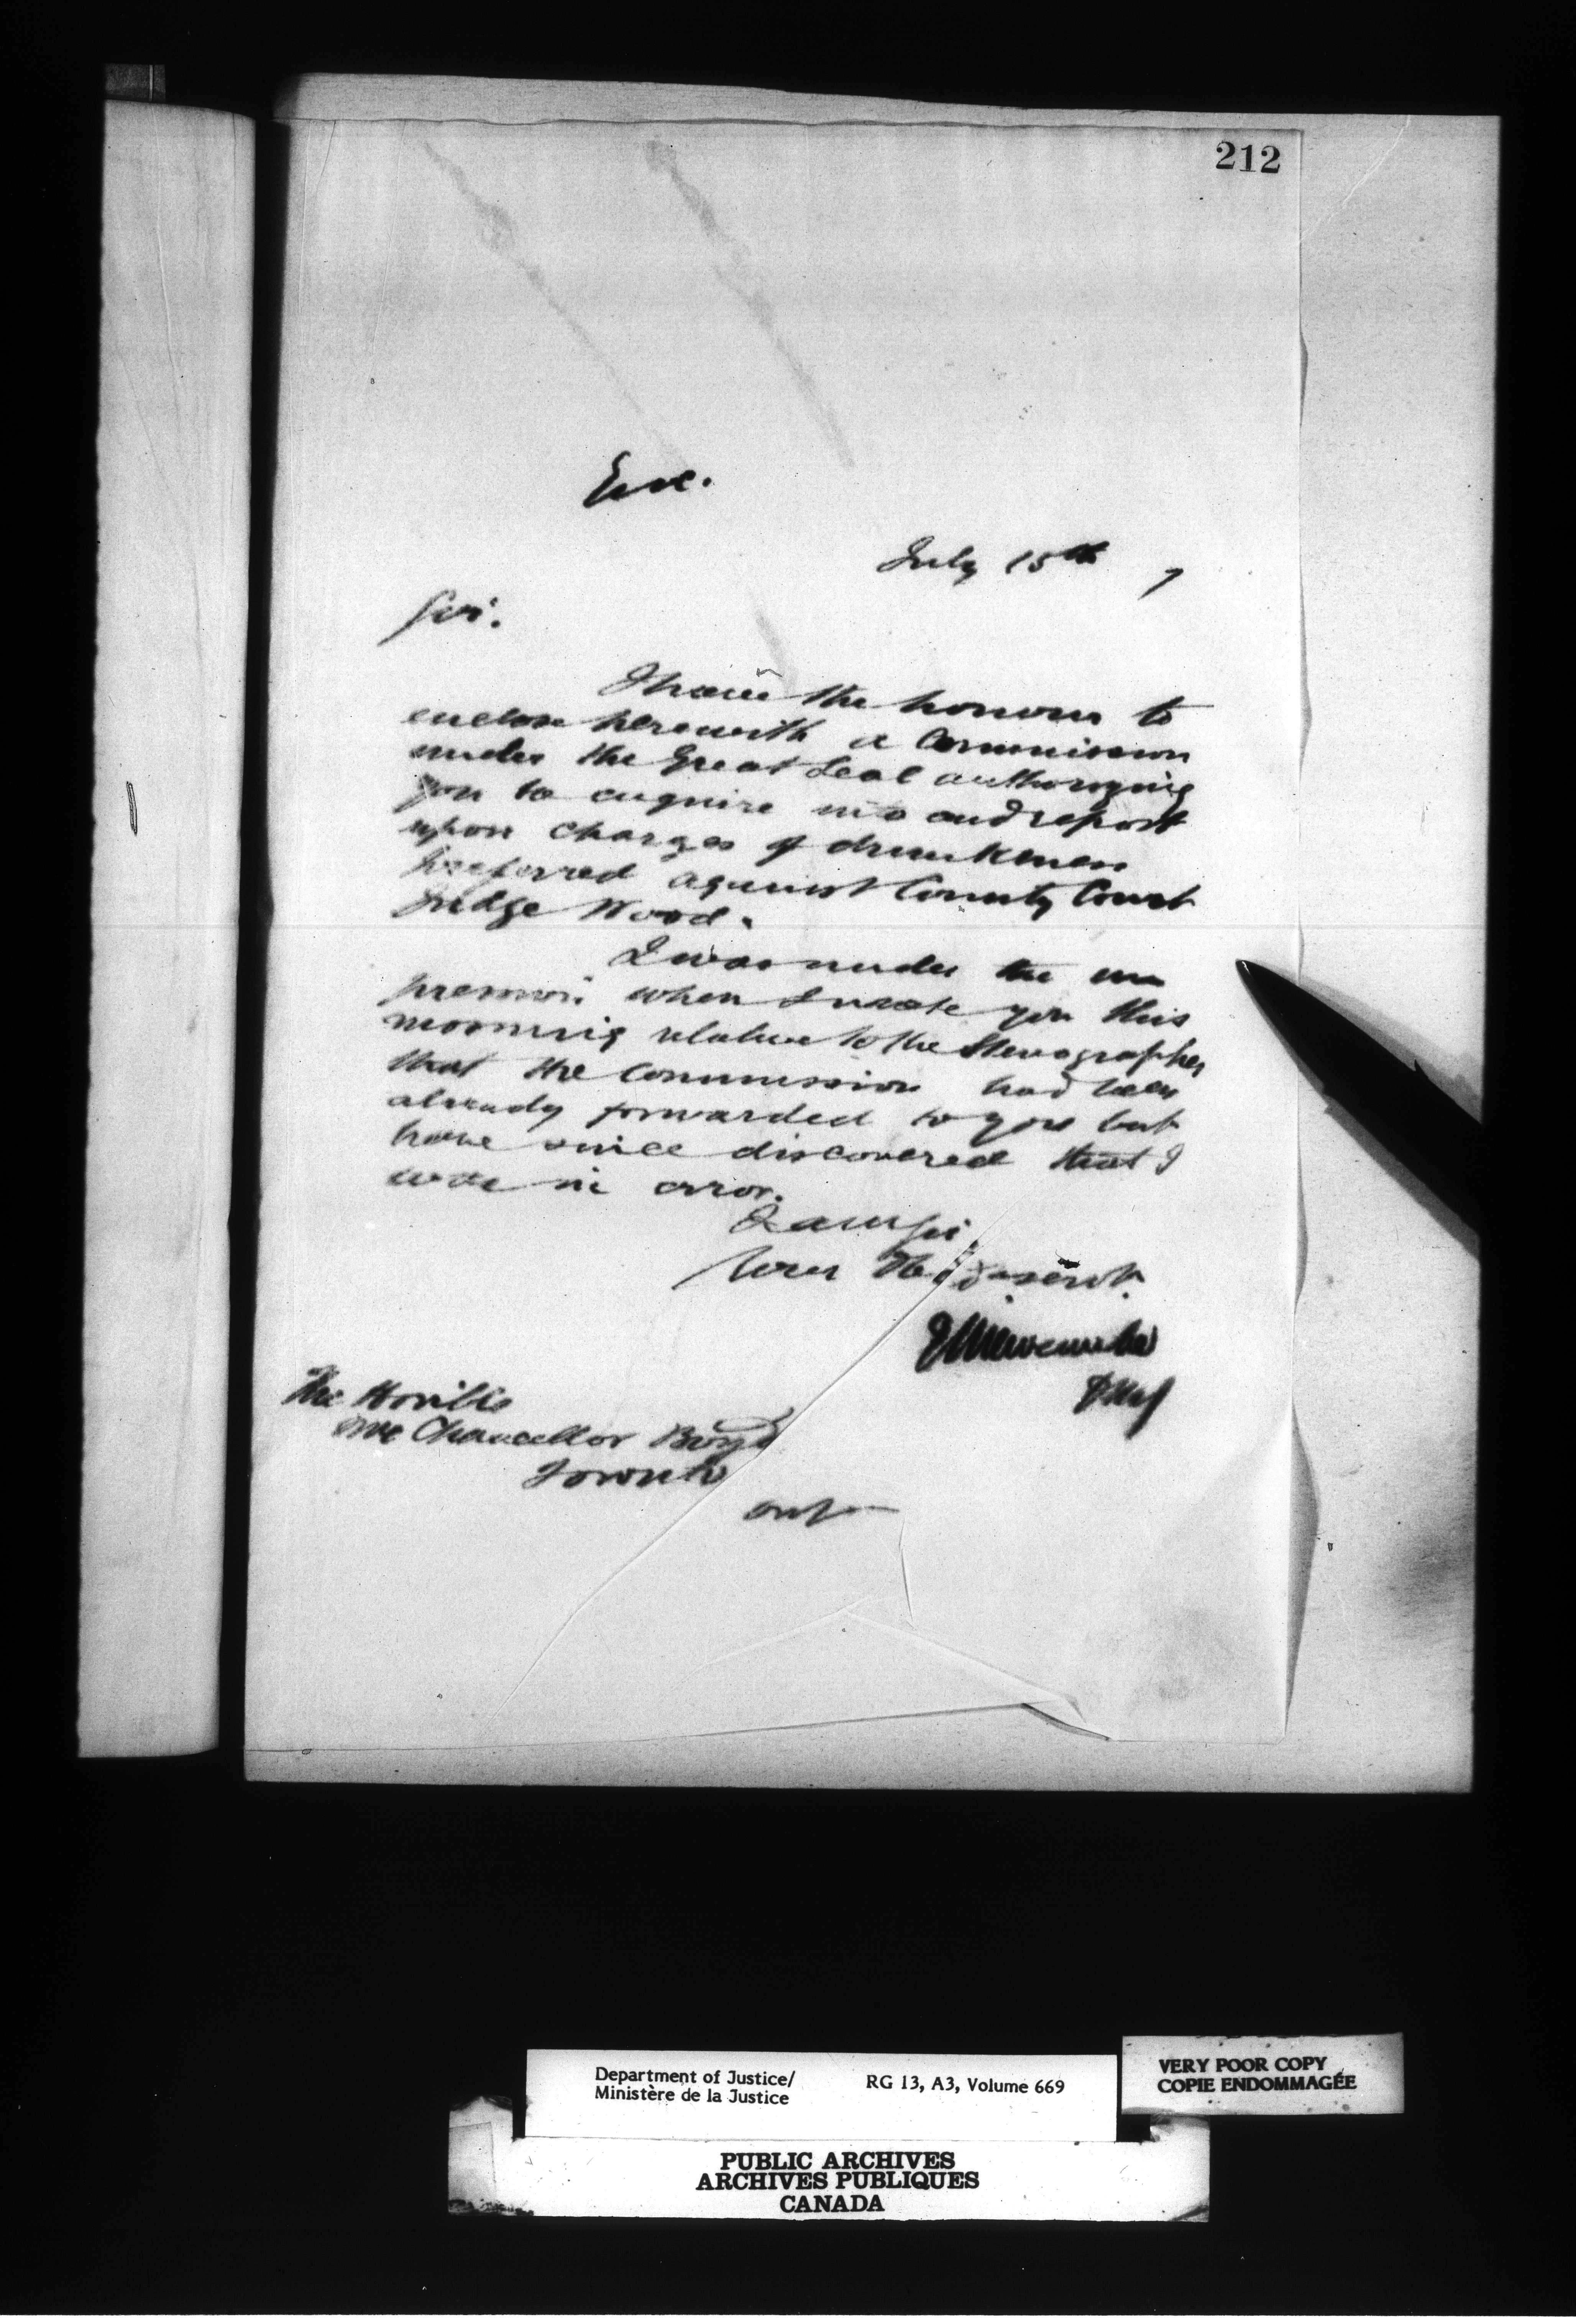 212
Enc.
July 15th 7
Sir.
I have the honour to
enclose herewith a Commission
under the Great Seal authorizing
you to enquire into and report
upon charges of drunkenness
preferred against County Court
Judge Wood.
I was under the im
pression when I wrote you this
morning relative to the Stenographer
that the Commission had been
already forwarded to you but
have since discovered that I
wrote in error.
I am Sir
Your Obedt servt.
E L Newcombe
DMJ
The Honble
The Chancellor Boyd
Toronto
Ont
Department of Justice/
Ministère de la Justice
RG 13, A3, Volume 669
VERY POOR COPY
COPIE ENDOMMAGÉE
PUBLIC ARCHIVES
ARCHIVES PUBLIQUES
CANADA